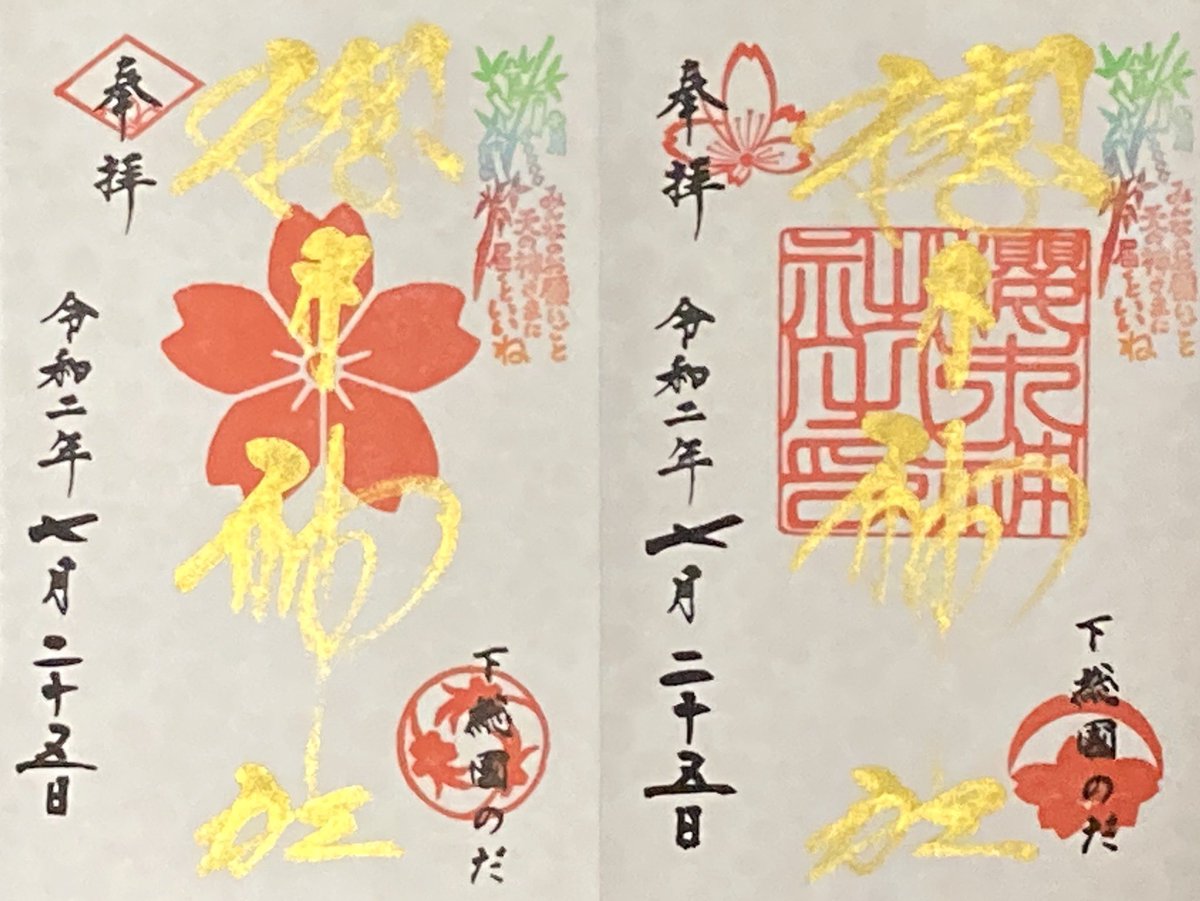 奉拝
令和二年七月二十五日
櫻木神社
みんなの願いごと
天の神さまに
届くといいね
下総國のだ
奉拝
令和二年七月二十五日
櫻木神社
櫻木神
社之印
みんなの願いごと
天の神さまに
届くといいね
下総國のだ